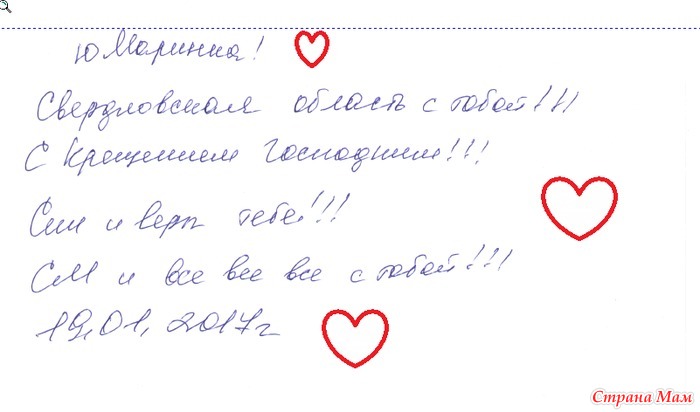 Ю Маринка!
Свердловская область с тобой!!!
С Крещением Господним!!!
Сил и веры тебе!!!
СМ и все все все с тобой!!!
19.01.2017г
Страна Мам